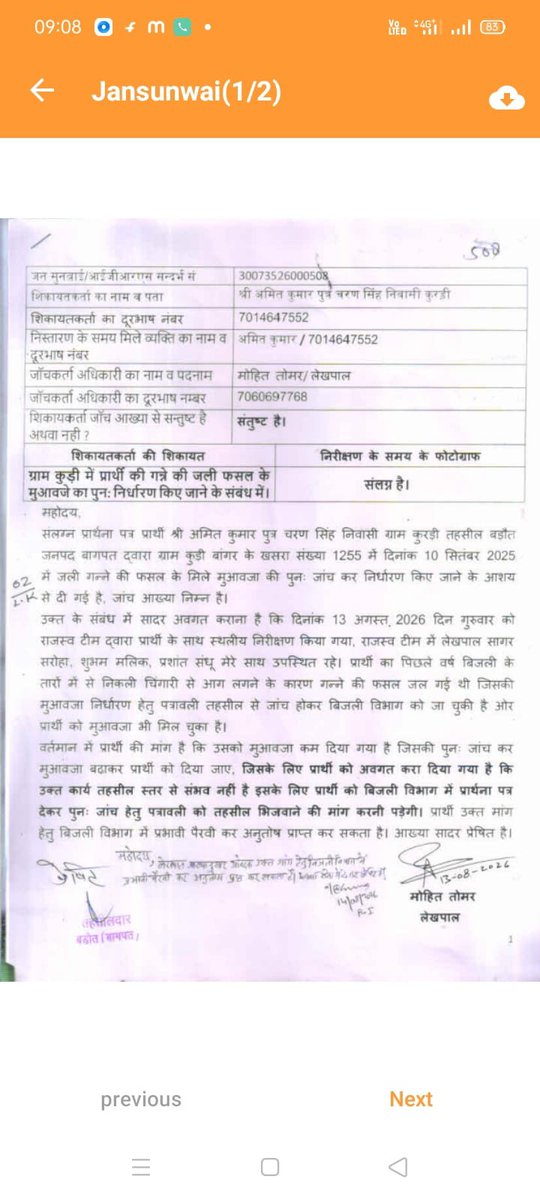 09:08
Vo LTED 4G+ 83
Jansunwai(1/2)
508
जन सुनवाई/आईजीआरएस सन्दर्भ सं 30073526000508
शिकायतकर्ता का नाम व पता श्री अमित कुमार पुत्र चरण सिंह निवासी कुरडी
शिकायतकर्ता का दूरभाष नंबर 7014647552
निस्तारण के समय मिले व्यक्ति का नाम व दूरभाष नंबर अमित कुमार / 7014647552
जाँचकर्ता अधिकारी का नाम व पदनाम मोहित तोमर/ लेखपाल
जाँचकर्ता अधिकारी का दूरभाष नम्बर 7060697768
शिकायकर्ता जाँच आख्या से सन्तुष्ट है अथवा नही ? संतुष्ट है।
शिकायतकर्ता की शिकायत निरीक्षण के समय के फोटोग्राफ
ग्राम कुड़ी में प्रार्थी की गन्ने की जली फसल के मुआवजे का पुन: निर्धारण किए जाने के संबंध में। संलग्न है।
महोदय,
संलग्न प्रार्थना पत्र प्रार्थी श्री अमित कुमार पुत्र चरण सिंह निवासी ग्राम कुरडी तहसील बडौत
जनपद बागपत द्वारा ग्राम कुड़ी बांगर के खसरा संख्या 1255 में दिनांक 10 सितंबर 2025
में जली गन्ने की फसल के मिले मुआवजा की पुन: जांच कर निर्धारण किए जाने के आशय
02
से दी गई है, जांच आख्या निम्न है।
उक्त के संबंध में सादर अवगत कराना है कि दिनांक 13 अगस्त 2026 दिन गुरुवार को
राजस्व टीम द्वारा प्रार्थी के साथ स्थलीय निरीक्षण किया गया, राजस्व टीम में लेखपाल सागर
सरोहा, शुभम मलिक, प्रशांत संधू मेरे साथ उपस्थित रहे। प्रार्थी का पिछले वर्ष बिजली के
तारों में से निकली चिंगारी से आग लगने के कारण गन्ने की फसल जल गई थी जिसकी
मुआवजा निर्धारण हेतु पत्रावली तहसील से जांच होकर बिजली विभाग को जा चुकी है ओर
प्रार्थी को मुआवजा भी मिल चुका है।
वर्तमान में प्रार्थी की मांग है कि उसको मुआवजा कम दिया गया है जिसकी पुन: जांच कर
मुआवजा बढाकर प्रार्थी को दिया जाए, जिसके लिए प्रार्थी को अवगत करा दिया गया है कि
उक्त कार्य तहसील स्तर से संभव नहीं है इसके लिए प्रार्थी को बिजली विभाग में प्रार्थना पत्र
देकर पुन: जांच हेतु पत्रावली को तहसील भिजवाने की मांग करनी पड़ेगी। प्रार्थी उक्त मांग
हेतु बिजली विभाग में प्रभावी पैरवी कर अनुतोष प्राप्त कर सकता है। आख्या सादर प्रेषित है।
महोदय,
प्रेषित
R.I
13-08-2026
मोहित तोमर
लेखपाल
तहसीलदार
बड़ौत (बागपत)
1
previous Next